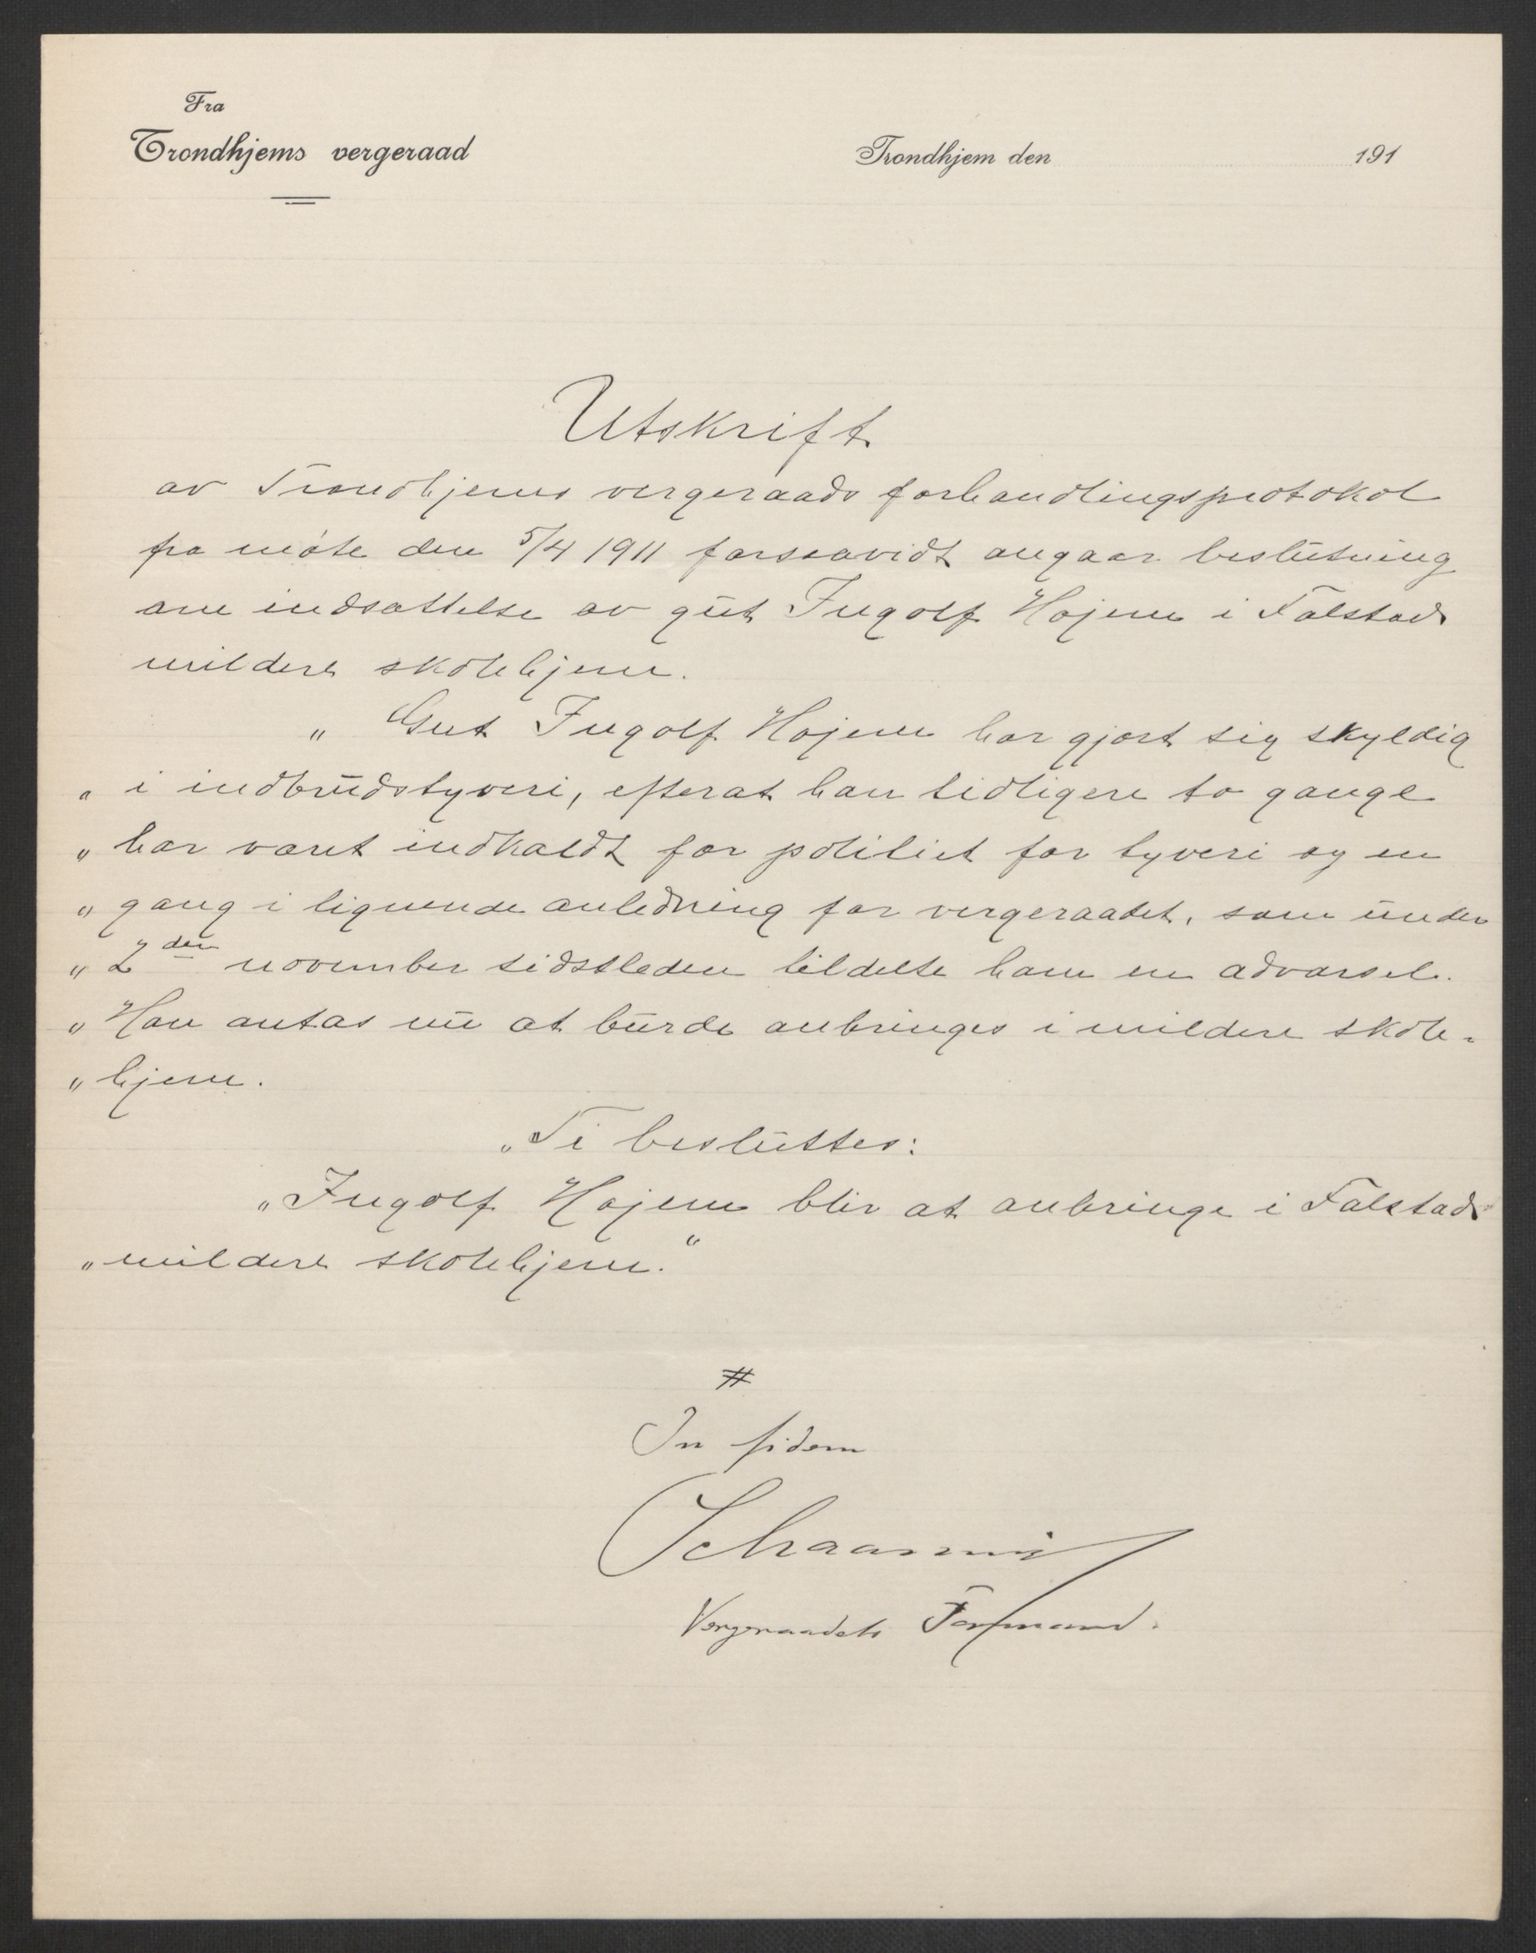 Fra
Trondhjems vergeraad
Trondhjem den 191
Utskrift
av Trondhjems vergeraads forhandlingsprotokol
fra møte den 5/4 1911 forsaavidt angaar beslutning
om indsættelse av gut Ingolf Højem i Falstad
mildere skolehjem.
„ Gut Ingolf Højem har gjort sig skyldig
„ i indbrudstyveri, efterat han tidligere to gange
„ har været indkaldt for politiet for tyveri og en
„ gang i lignende anledning for vergeraadet, som under
„ 2den november sidstleden tildelte ham en advarsel.
„ Han antas nu at burde anbringes i mildere skole-
„ hjem.
„Ti besluttes:
„Ingolf Højem blir at anbringe i Falstad
„ mildere skolehjem.“
#
In fidem
Vergeraadets Formand.